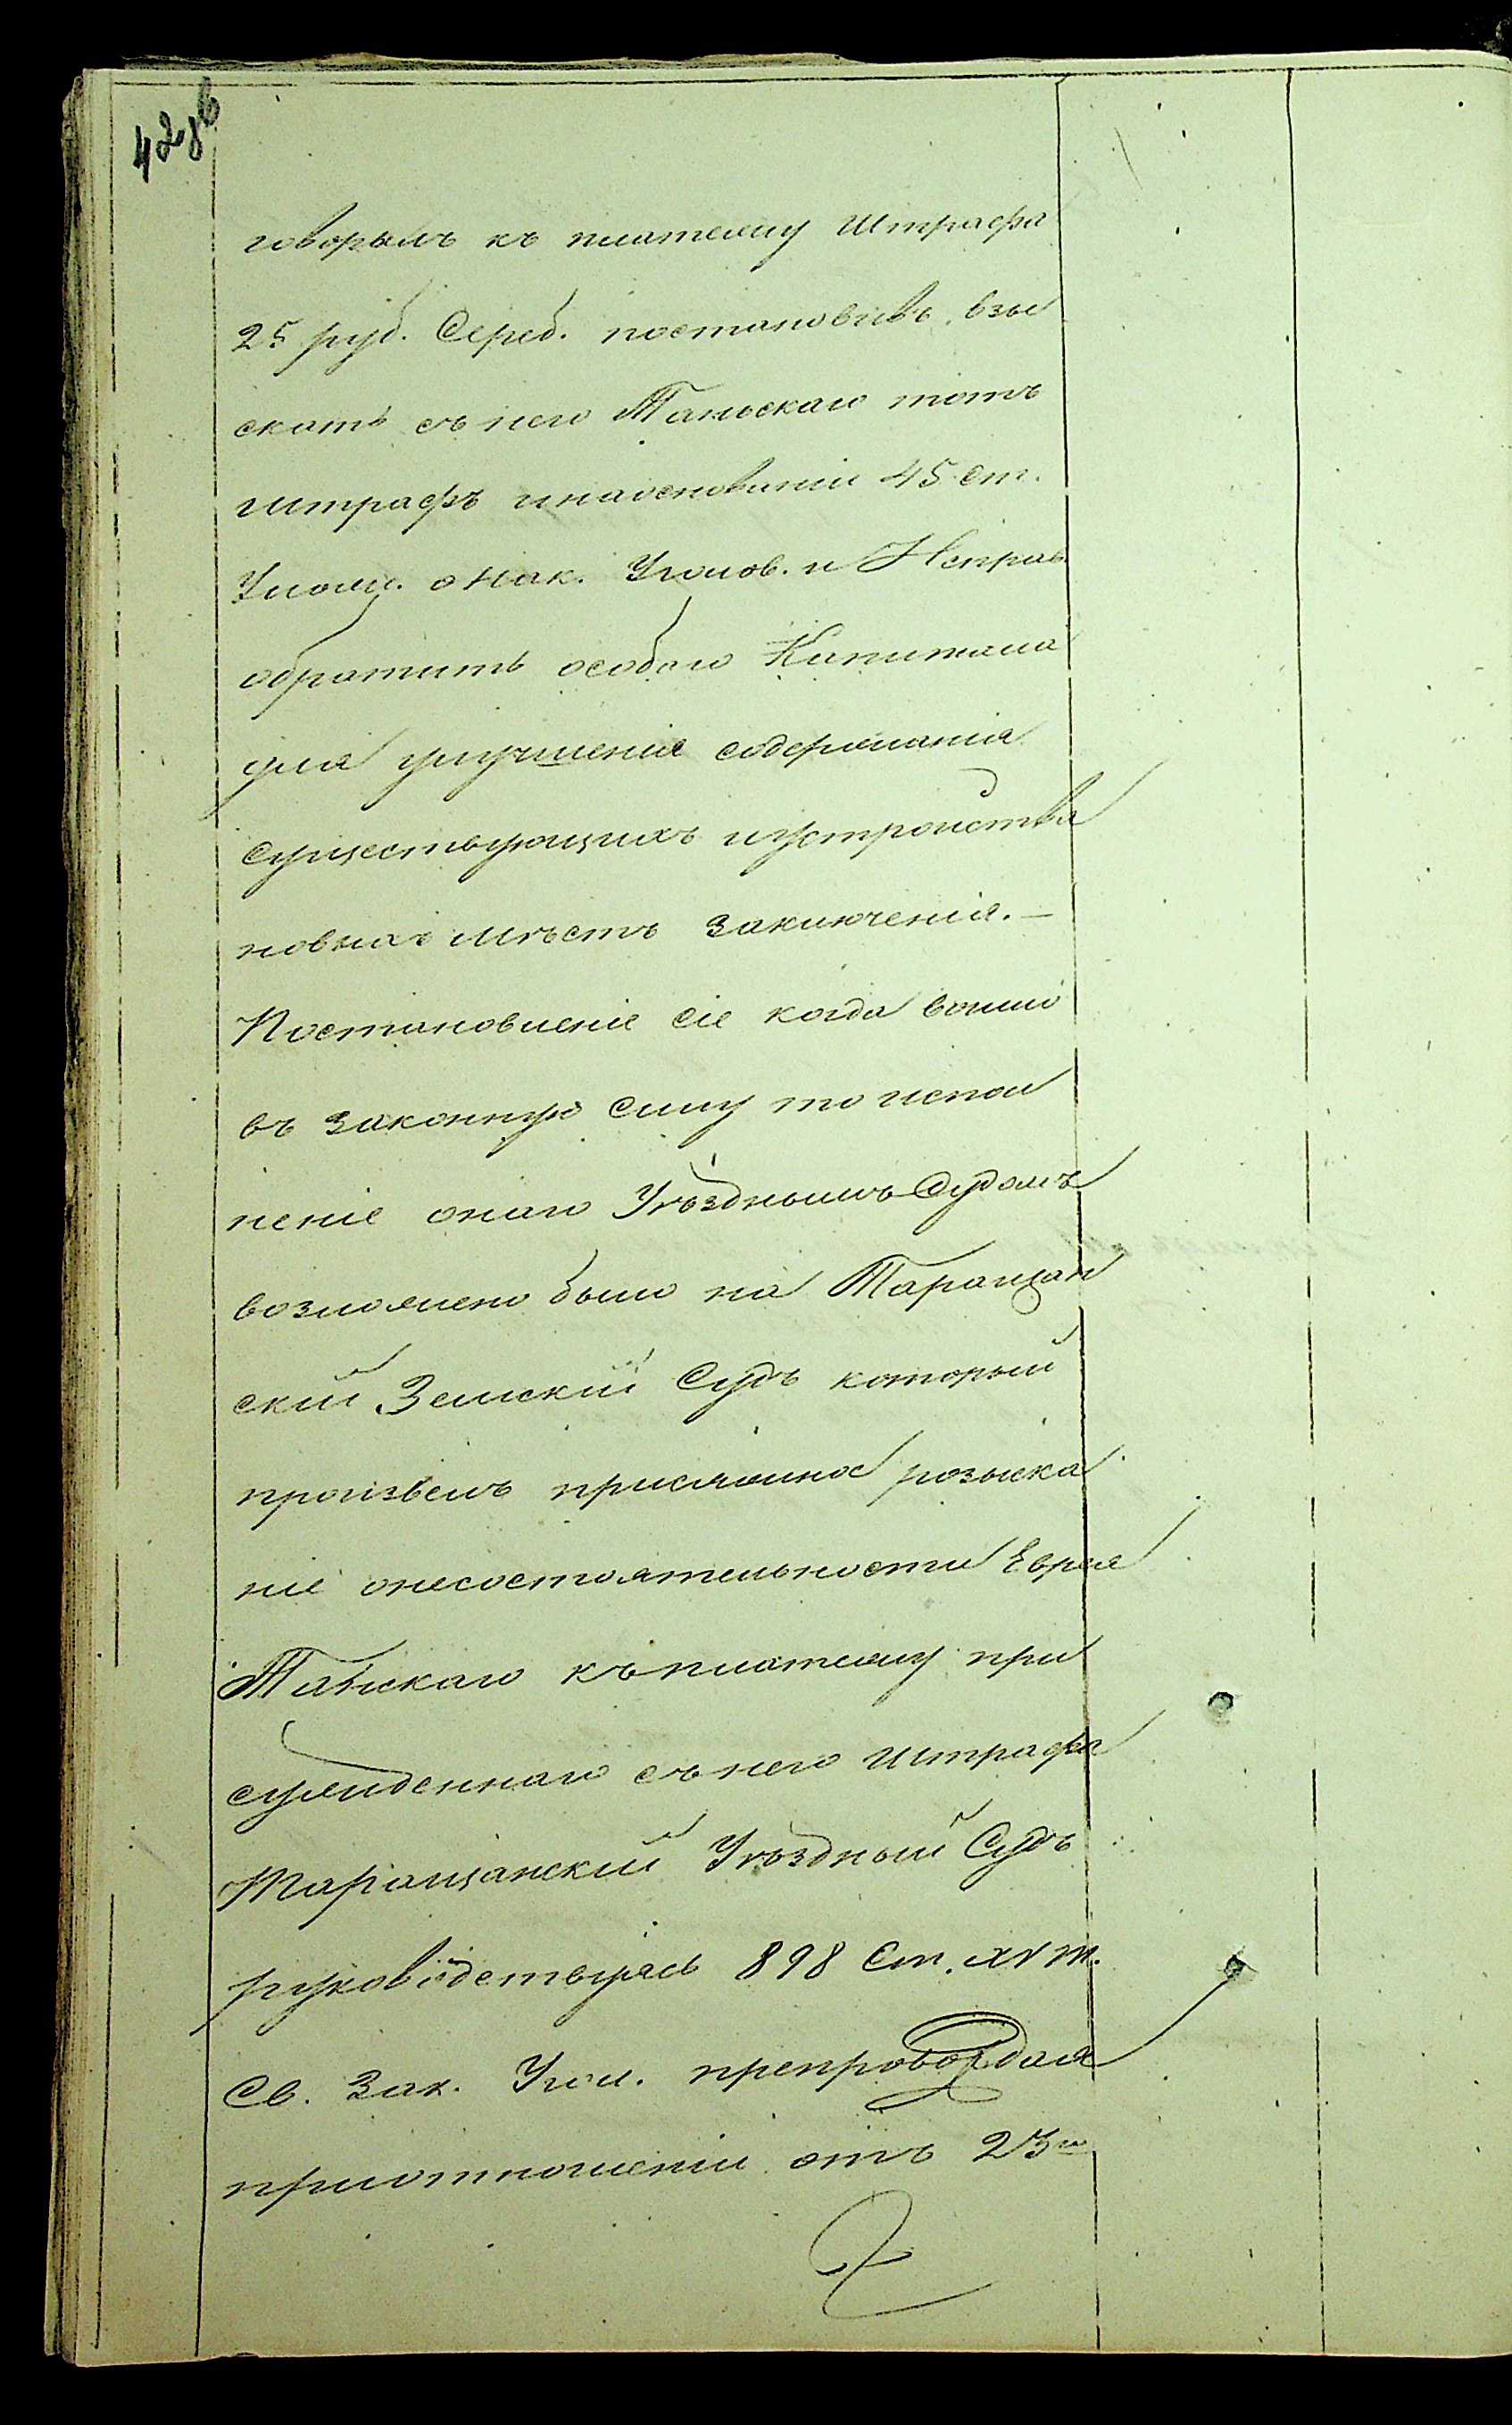 42 об
говоромъ къ платежу штрафа
25 руб. Сереб. постановивъ взы
скать съ него Таньскаго тотъ
штрафъ и на основаніи 45 ст.
Улож. о Нак. Уголов. и Исправ.
обратить особого Капитала
для улучшенія содержанія
существующихъ и устройства
новыхъ мѣстъ заключенія. —
Постановленіе сіе когда вошло
въ законную силу то испол
неніе онаго Уѣзднымъ Судомъ
возложено было на Таращан
скій Земскій Судъ который
произвелъ присяжное розыска
ніе о несостоятельности Еврея
Таньскаго къ платежу при
сужденнаго съ него штрафа
Таращанскій Уѣздный Судъ
руководствуясь 898 Ст. XV т.
Св. Зак. Угол. препровождая
при отношеніи отъ 23го